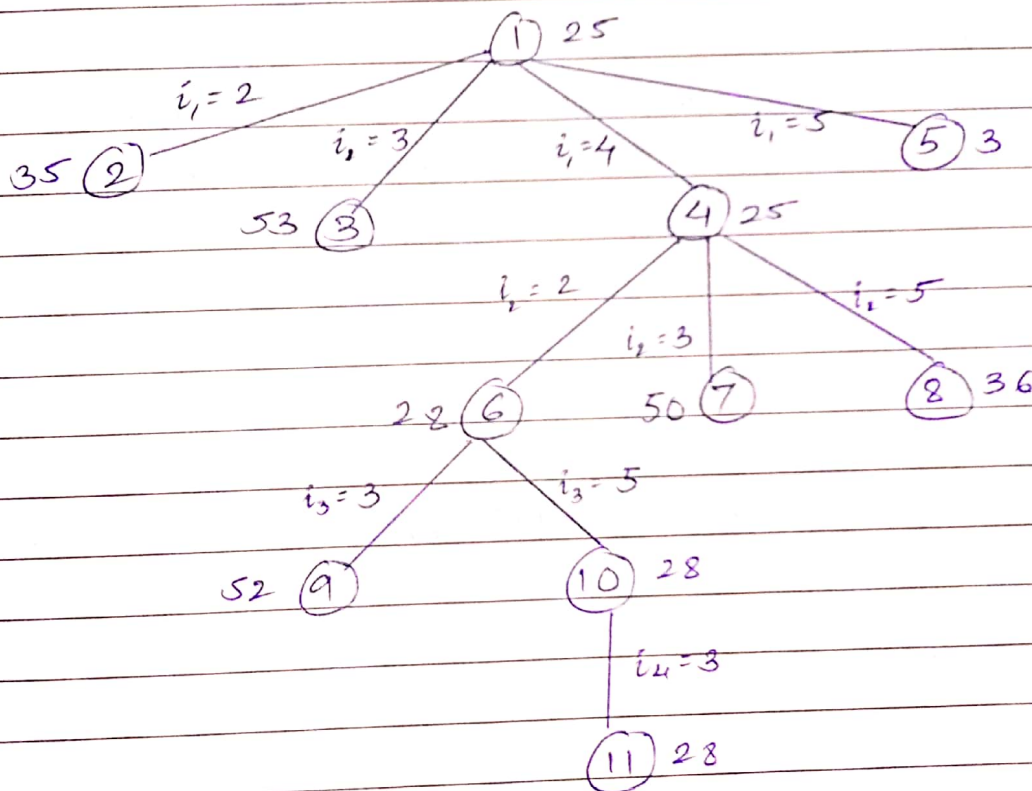 1 25
i₁ = 2
i₁ = 3
i₁ = 4
i₁ = 5
35 2
53 3
4 25
5 3
i₂ = 2
i₂ = 3
i₂ = 5
28 6
50 7
8 36
i₃ = 3
i₃ = 5
52 9
10 28
i₄ = 3
11 28